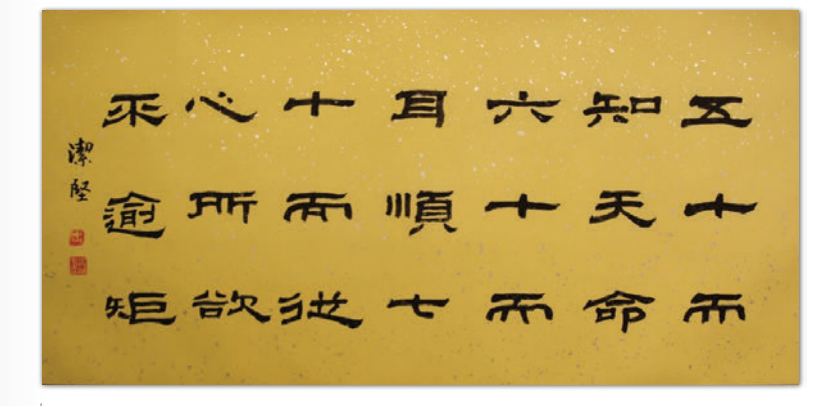 五十而
知天命
六十而
耳順七
十而從
心所欲
不逾矩
潔堅